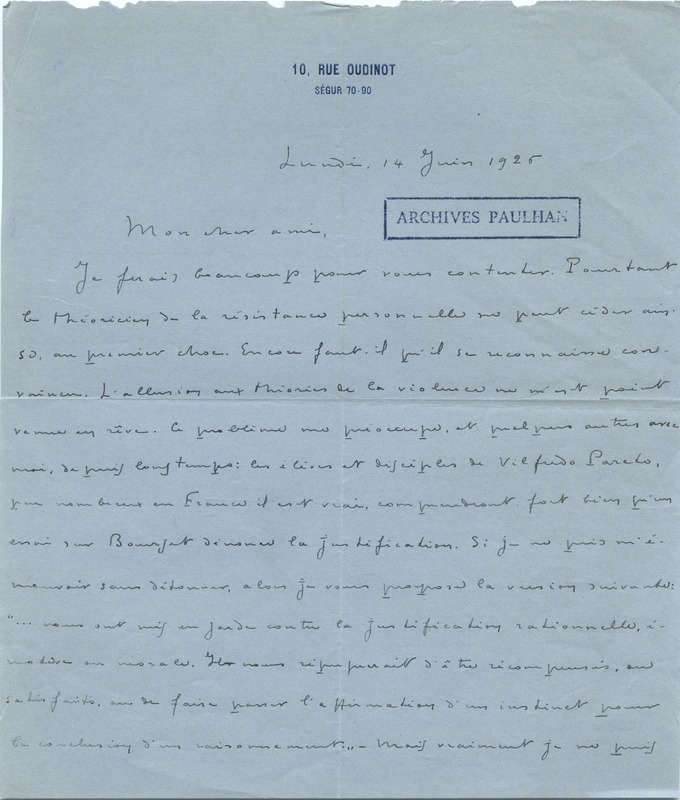 10, RUE OUDINOT
SÉGUR 70-90
Lundi, 14 Juin 1926
ARCHIVES PAULHAN
Mon cher ami,
Je ferais beaucoup pour vous contenter. Pourtant
le théoricien de la résistance personnelle ne peut céder ain-
si, au premier choc. Encore faut-il qu'il se reconnaisse con-
vaincu. L'allusion aux théories de la violence ne m'est point
venue en rêve. Ce problème me préoccupe, et quelques autres avec
moi, depuis longtemps: les élèves et disciples de Vilfredo Pareto,
peu nombreux en France il est vrai, comprendront fort bien qu'un
essai sur Bourget dénonce la justification. Si je ne puis m'é-
mouvoir sans détonner, alors je vous propose la version suivante:
"... nous ont mis en garde contre la justification rationnelle,
ou morale. Il nous répugnerait d'être récompensés, ou
satisfaits, ou de faire passer l'affirmation d'un instinct pour
la conclusion d'un raisonnement.." – Mais vraiment je ne puis